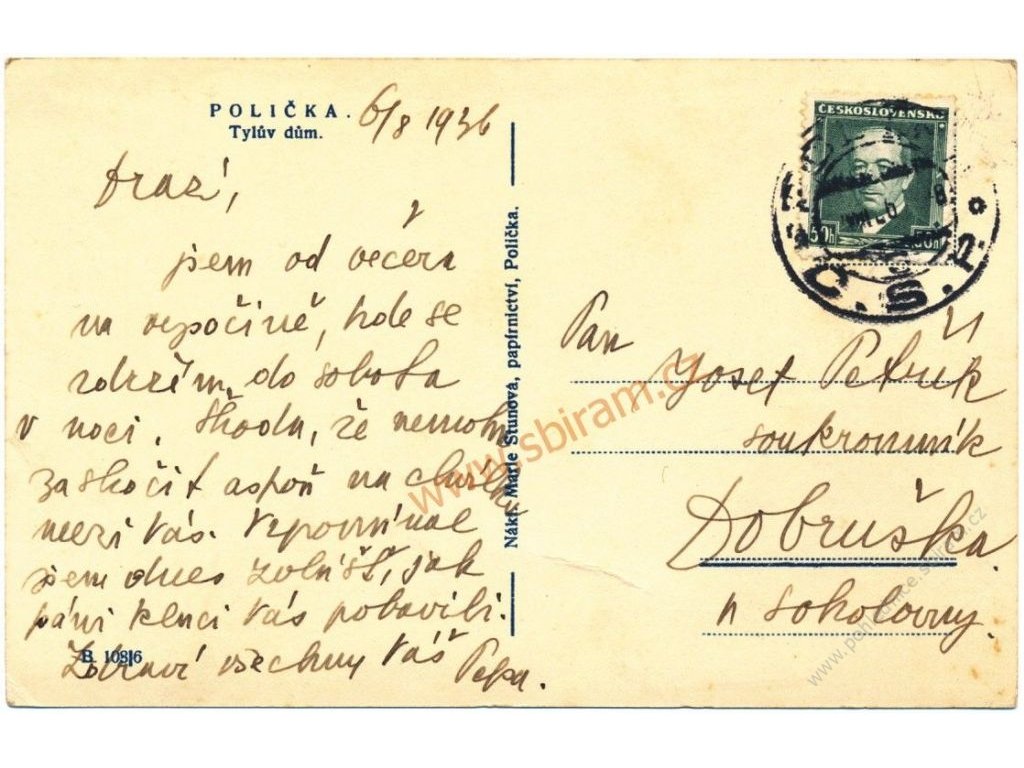 POLIČKA.
Tylův dům.
6/8 1936
Drazí,
jsem od včera
na výpočině, kde se
zdržím do sobota
v noci. Škoda, že nemohu
zaskočit aspoň na chvilku
mezi Vás. Vzpomínal
jsem dnes zvlášť, jak
páni kluci Vás pobavili.
Zdraví všechny Váš Pepa.
B 108|6
Nákl. Marie Štunová, papírnictví, Polička.
ČESKOSLOVENSKO
50h 50h
Č.S.P.
Pán
Josef Petřík
soukromník
Dobruška
u sokolovny.
www.sbiram.cz
www.pohlednice.sbiram.cz